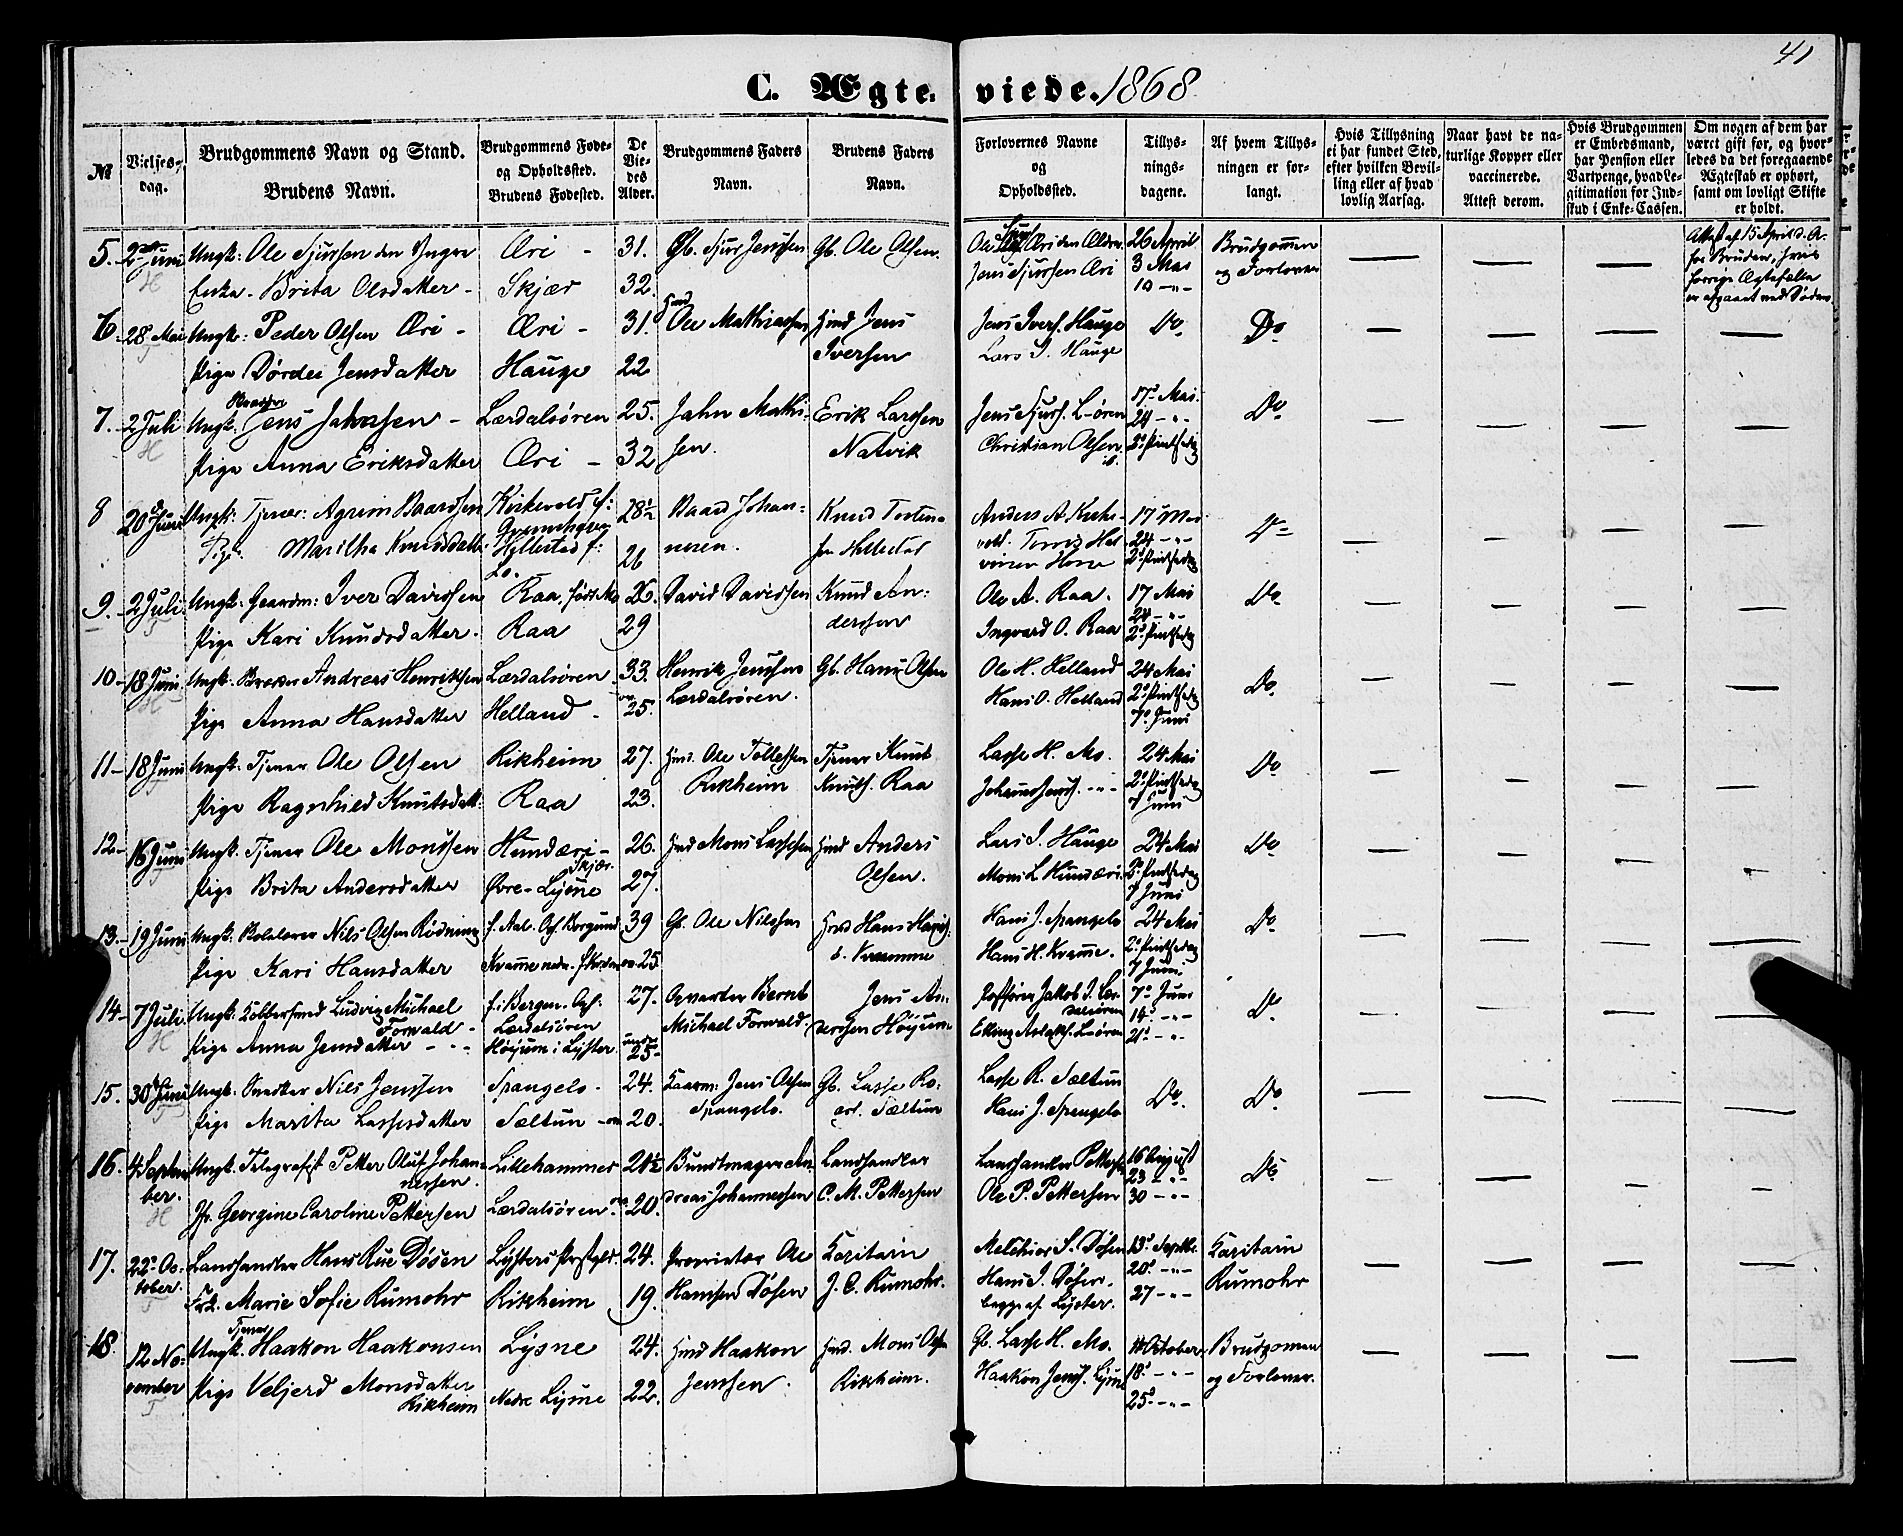 41
C. Ægteviede. 1868
№
Vielses-dag.
Brudgommens Navn og Stand.
Brudens Navn.
Brudgommens Føde- og Opholdssted.
Brudens Fødested.
De Viedes Alder.
Brudgommens Faders Navn.
Brudens Faders Navn.
Forlovernes Navne og Opholdssted.
Tillysningsdagene.
Af hvem Tillysningen er forlangt.
Hvis Tillysning ei har fundet Sted, efter hvilken Bevilling eller af hvad lovlig Aarsag.
Naar havt de naturlige Kopper eller vaccinerede. Attest derom.
Hvis Brudgommen er Embedsmand, har Pension eller Vartpenge, hvad Legitimation for Indskud i Enke-Cassen.
Om nogen af dem har været gift før, og hvorledes da det foregaaende Ægteskab er ophørt, samt om lovligt Skifte er holdt.
5. 2 Juni Ungk: Ole Sjursen den Yngre Æri - 31. Gb. Sjur Jenssen Gb. Ole Olsen. Ole Sjurs. Æri den Ældre 26 April Brudgommen
H Enke - Brita Olsdatter - Skjær 32. Jens Sjursen Æri 3 Mai og Forlover
10 -"-
Attest af 15 April d. A. for Bruden, hvis forrige Ægtefælle er afgaaet ved Døden
6. 28 Mai Ungk: Peder Olsen Æri - Æri - 31. Gmd Ole Mathiassen Gmd Jens Iversen Jens Ivers. Hauge Do Do
Pige Dørdei Jensdatter Hauge 22 Lars I. Hauge
7. 2 Juli Ungk: Jens Jahnsen - Lærdalsören 25. Jahn Mathisen. Erik Larssen Natvik Jens Sjurs. L-ören 17 Mai. Do
H Pige Anna Eriksdatter Æri - 32 Christian Olsen ib. 24 -"-
2. Pintsedag
8 20 Juni Ungk: Tjener: Agrim Baardsen Kirkevold f: 28½ Baard Johannesen. Knud Torstensen Hellestad Anders A. 17 Mai Do
Pige Maritha Knudsdatter Hellestad f: 26 24 -"-
Lo. 2. Pintsedag
9. 2 Juli Ungk: Gaardm: Iver Davidsen Raa, født Mo 26. David Davidsen Knud Andersen Ole A. Raa. 17 Mai Do
Pige Kari Knudsdatter. Raa 29 Ingvard O. Raa 24 -"-
2. Pintsedag
10 - 18 Juni Ungk. Andreas Henriksen Lærdalsören 33. Henrik Jenssen Lærdalsören. Gb. Hans Olsen Ole H. Helland 24 Mai Do
H Pige Anna Hansdatter Helland - 25. Hans O. Helland 2. Pintsedag
7. Juni
11 - 18 Juni Ungk. Tjener Ole Olsen Rikheim 27. Gmd. Ole Tollefsen Rikheim Tjener Knut Knuts. Raa Lasse H. Mo. 24 Mai Do
Pige Ragnhild Knutsdatt: Raa 23. 2. Pintsedag
7 Juni
12 - 16 Juni Ungk. Tjener Ole Monssen Hundæri - 26. Gmd Mons Lassesen Gmd Anders Olsen. Lars I. Hauge 24 Mai Do
Pige Brita Andersdatter Øvre-Lysne Skjær 27. Mons L. Hundæri. 2. Pintsedag
7 Juni
13. - 19 Juni Ungk. Nils Olsen Rödning f. Aal. Oph. Borgund 39 Gb. Ole Nilssen Gmd Hans Kvamme Hans J. Spangelo 24 Mai Do
Pige Kari Hansdatter Kvamme nedre 25 Hans H. Kvamme. 2. Pintsedag
7 Juni
14 - 7 Juli. Ungk. Kobbersmed Ludvig Michael Forvald - f. i Bergen. Oph: Lærdalsören 27. Bernt Michael Forvald. Jens Andersen Höyum Jakob J. Lærdalsören 7. Juni Do
H Pige Anna Jensdatter - Höyum i Lyster. 25 - Elling Aslaks. L-ören 14. -"-
21. -"-
15. 30 Juni Ungk: Snedker Nils Jenssen Spangelo - 24. Jens Olsen Spangelo. Gb. Lasse Sæltun Lasse R. Sæltun Do. Do
Pige Martta Lassesdatter Sæltun - 20. Hans J. Spangelo
16. 4 September. Ungk. Telegrafist Petter Oluf Johannessen. Lillehammer 20½ Bundtmager Andreas Johannessen Landhandler C. M. Pettersen Landhandler Pettersen 16 August Do
H Jfr. Georgine Caroline Pettersen Lærdalsören. 20. Ole P. Pettersen 23 -"-
30 -"-
17. 22. October. Landhandler Hans Rue Døsen Lysters Præstgjeld. 24. Proprietær Ole Hansen Døsen Kaptain J. C. Rumohr. Melchior S. Døsen 13. Septbr. Kaptain Rumohr
Frk. Marie Sofie Rumohr Rikheim 19. Hans I. Døsen. 20. -"-
begge af Lyster. 27 -"-
18. 12 November Ungk. Tjener Haakon Haakonsen Lysne 24. Gmd Haakon Jenssen. Gmd. Mons Olsen Rikheim. Gb. Lasse H. Mo. 11 October Brudgommen og Forlover.
Pige Veljerd Monsdatter Rikheim Nedre Lysne 22. Haakon Jens. Lysne 18. -"-
25. -"-